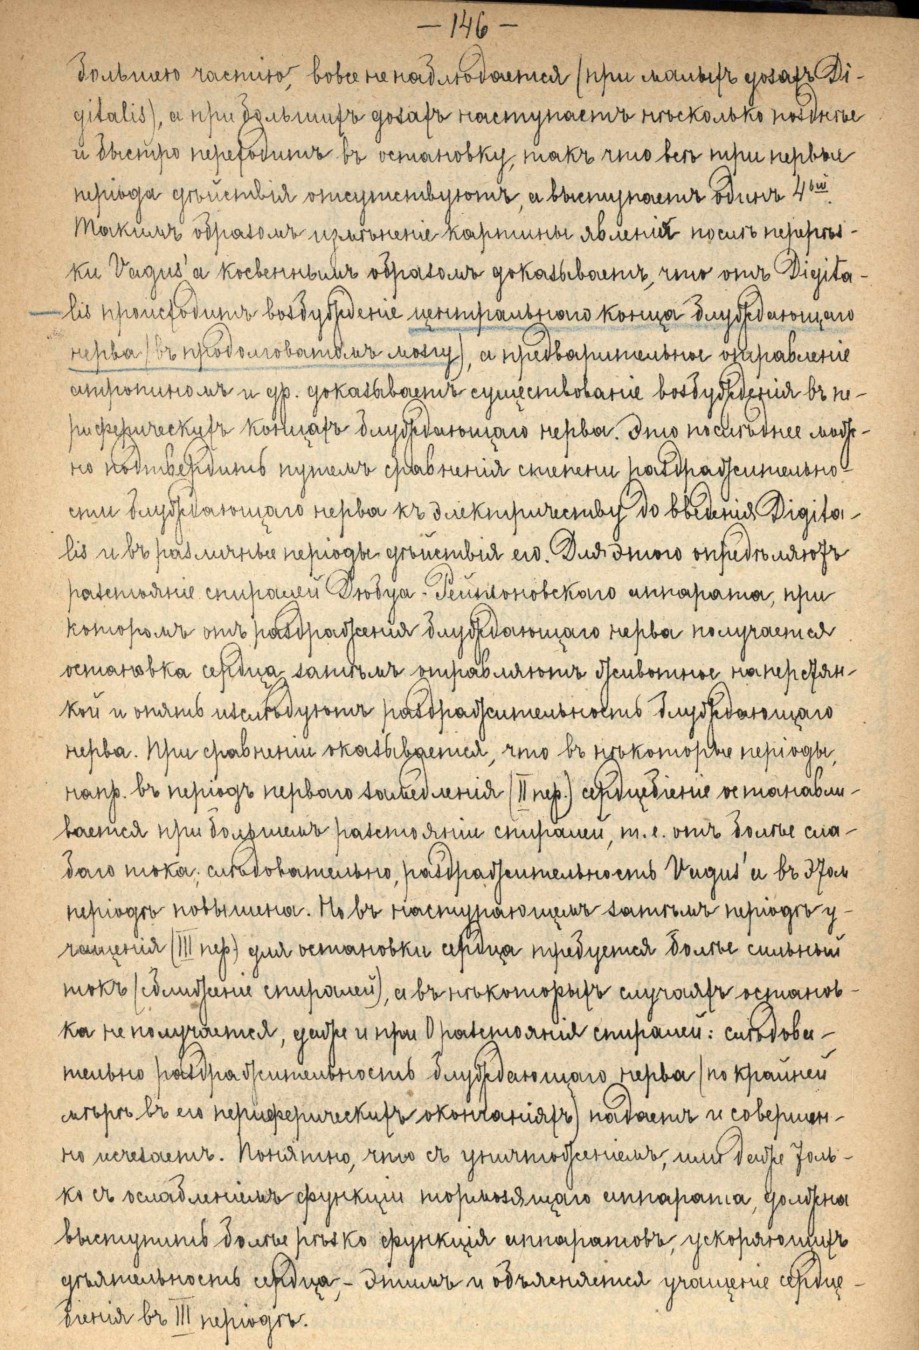 — 146 —
большею частію, вовсе не наблюдается (при малыхъ дозахъ Di-
gitalis), а при большихъ дозахъ наступаетъ нѣсколько позднѣе
и быстро переходитъ въ остановку, такъ что всѣ три первые
періода дѣйствія отсутствуютъ, а выступаетъ одинъ 4ый.
Такимъ образомъ измѣненіе картины явленій послѣ перерѣз-
ки Vagus'а косвеннымъ образомъ доказываетъ, что отъ Digita-
lis происходитъ возбужденіе центральнаго конца блуждающаго
нерва (въ продолговатомъ мозгу), а предварительное отравленіе
атропиномъ и др. доказываетъ существованіе возбужденія въ пе-
риферическихъ концахъ блуждающаго нерва. Это послѣднее мож-
но подтвердить путемъ сравненія степени раздражительно-
сти блуждающаго нерва къ электричеству до введенія Digita-
lis и въ различные періоды дѣйствія его. Для этого опредѣляютъ
разстояніе спиралей Дюбуа-Реймоновскаго аппарата, при
которомъ отъ раздраженія блуждающаго нерва получается
остановка сердца, затѣмъ отравляютъ животное наперстян-
кой и опять изслѣдуютъ раздражительность блуждающаго
нерва. При сравненіи оказывается, что въ нѣкоторые періоды,
напр. въ періодъ перваго замедленія (II пер.) сердцебіеніе останавли-
вается при большемъ разстояніи спиралей, т. е. отъ болѣе сла-
баго тока; слѣдовательно, раздражительность Vagus'а въ этом
періодѣ повышена. Но въ наступающемъ затѣмъ періодѣ у-
чащенія (III пер.) для остановки сердца требуется болѣе сильный
токъ (сближеніе спиралей), а въ нѣкоторыхъ случаяхъ останов-
ка не получается, даже и при 0 разстоянія спиралей: слѣдова-
тельно раздражительность блуждающаго нерва (по крайней
мѣрѣ въ его периферическихъ окончаніяхъ) падаетъ и совершен-
но исчезаетъ. Понятно, что съ уничтоженіемъ, или даже толь-
ко съ ослабленіемъ функціи тормозящаго аппарата, должна
выступить болѣе рѣзко функція аппаратовъ, ускоряющихъ
дѣятельность сердца, - этимъ и объясняется учащеніе сердце-
біенія въ III періодѣ.